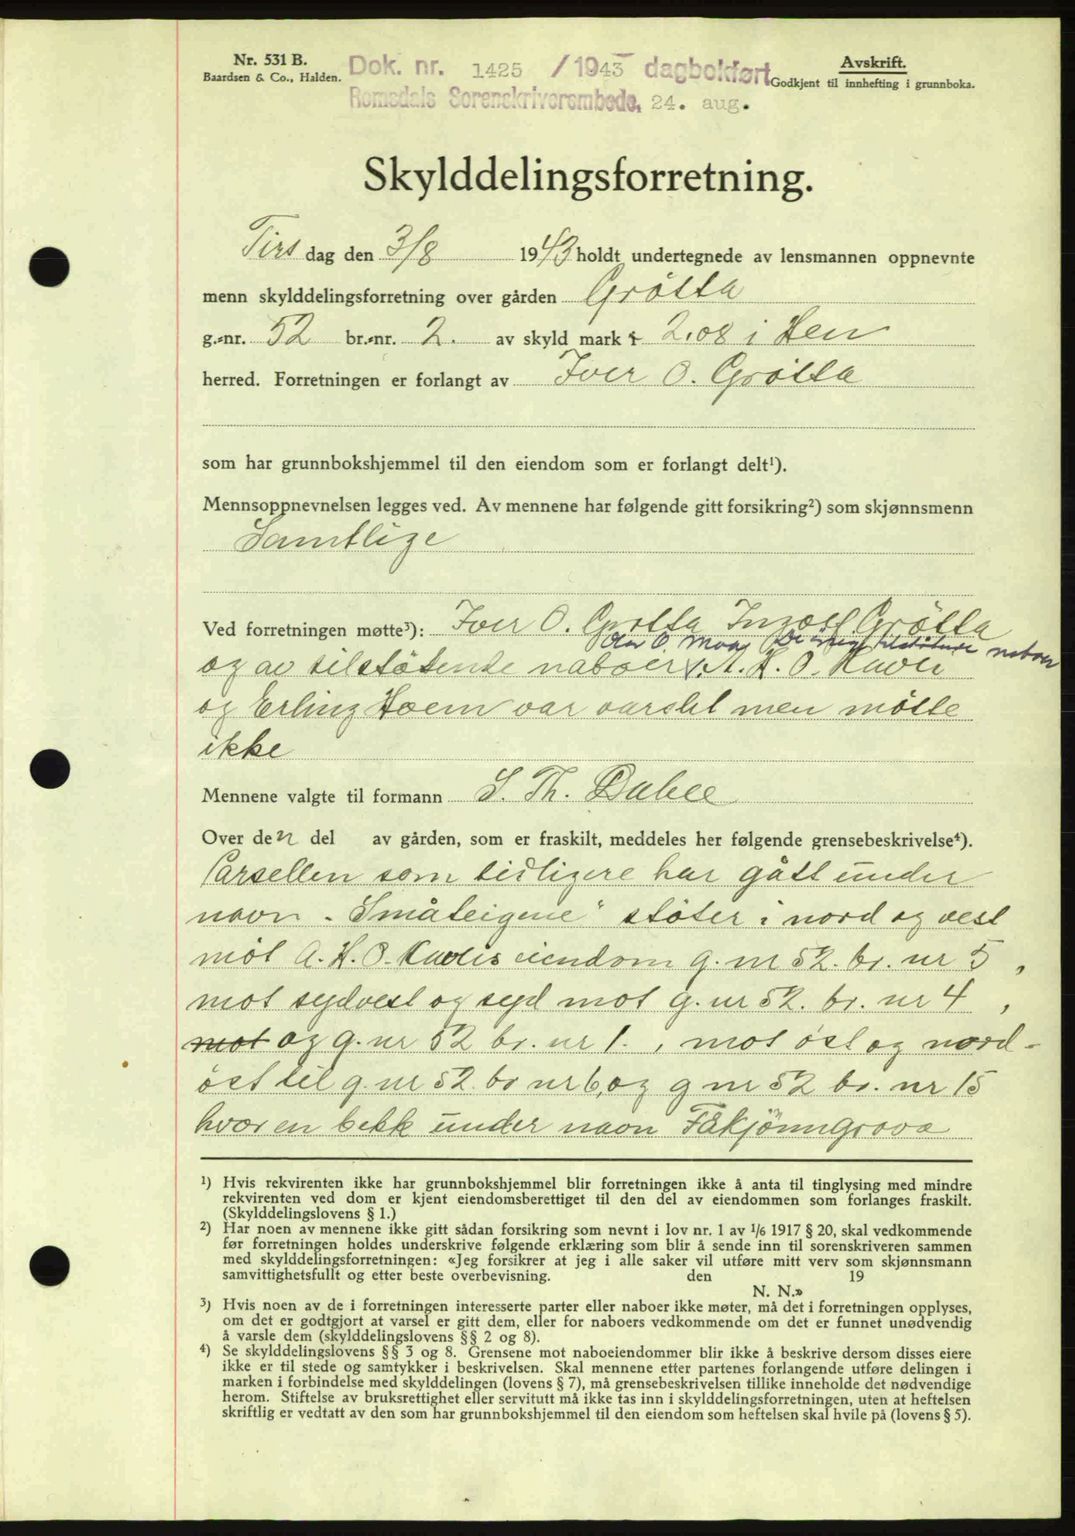 Nr. 531 B.
Baardsen & Co., Halden.
Dok. nr. 1425 /1943 dagbokført
Romsdals Sorenskriverembede, 24. aug.
Avskrift.
Godkjent til innhefting i grunnboka.
Skylddelingsforretning.
Tirs dag den 3/8 1943 holdt undertegnede av lensmannen oppnevnte
menn skylddelingsforretning over gården Grötta
g.-nr. 52 br.-nr. 2. av skyld mark 2.08 i Hen
herred. Forretningen er forlangt av Iver O. Grötta
som har grunnbokshjemmel til den eiendom som er forlangt delt¹).
Mennsoppnevnelsen legges ved. Av mennene har følgende gitt forsikring²) som skjønnsmenn
Samtlige
Ved forretningen møtte³): Iver O. Grötta Ingolf Grötta
O. Moa. De øvrige tilstötende naboer
og av tilstötende naboer A. H. O. Kavli
og Erling Hoem var varslet men mötte
ikke
Mennene valgte til formann S. Th. Dahle
Over den del av gården, som er fraskilt, meddeles her følgende grensebeskrivelse⁴).
Parsellen som tidligere har gått under
navn „Småteigene" stöter i nord og vest
mot A. H. O. Kavlis eiendom g. nr 52. br. nr 5,
mot sydvest og syd mot g. nr 52. br. nr 4,
mot og g. nr 52 br. nr 1., mot öst og nord-
öst til g. nr 52. br nr 6, og g nr 52 br. nr 15
hvor en bekk under navn Fåkjönngrova
¹) Hvis rekvirenten ikke har grunnbokshjemmel blir forretningen ikke å anta til tinglysing med mindre
rekvirenten ved dom er kjent eiendomsberettiget til den del av eiendommen som forlanges fraskilt.
(Skylddelingslovens § 1.)
²) Har noen av mennene ikke gitt sådan forsikring som nevnt i lov nr. 1 av 1/6 1917 § 20, skal vedkommende
før forretningen holdes underskrive følgende erklæring som blir å sende inn til sorenskriveren sammen
med skylddelingsforretningen: «Jeg forsikrer at jeg i alle saker vil utføre mitt verv som skjønnsmann
samvittighetsfullt og etter beste overbevisning. den 19
N. N.»
³) Hvis noen av de i forretningen interesserte parter eller naboer ikke møter, må det i forretningen opplyses,
om det er godtgjort at varsel er gitt dem, eller for naboers vedkommende om det er funnet unødvendig
å varsle dem (skylddelingslovens §§ 2 og 8).
⁴) Se skylddelingslovens §§ 3 og 8. Grensene mot naboeiendommer blir ikke å beskrive dersom disses eiere
ikke er til stede og samtykker i beskrivelsen. Skal mennene etter partenes forlangende utføre delingen i
marken i forbindelse med skylddelingen (lovens § 7), må grensebeskrivelsen tillike inneholde det nødvendige
herom. Stiftelse av bruksrettighet eller servitutt må ikke tas inn i skylddelingsforretningen, uten at heftelsen
skriftlig er vedtatt av den som har grunnbokshjemmel til den eiendom som heftelsen skal hvile på (lovens § 5).